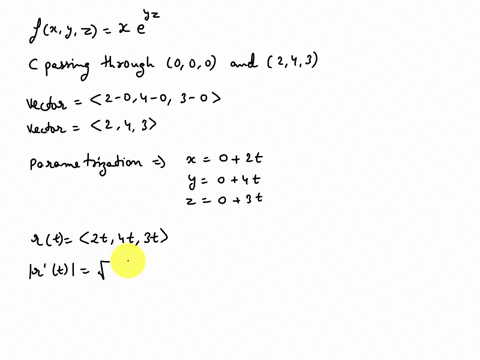 f(x,y,z) = x e^{yz}
C passing through (0,0,0) and (2,4,3)
vector = <2-0, 4-0, 3-0>
vector = <2, 4, 3>
Parametrization => x = 0+2t
y = 0+4t
z = 0+3t
r(t) = <2t, 4t, 3t>
|r'(t)| = √